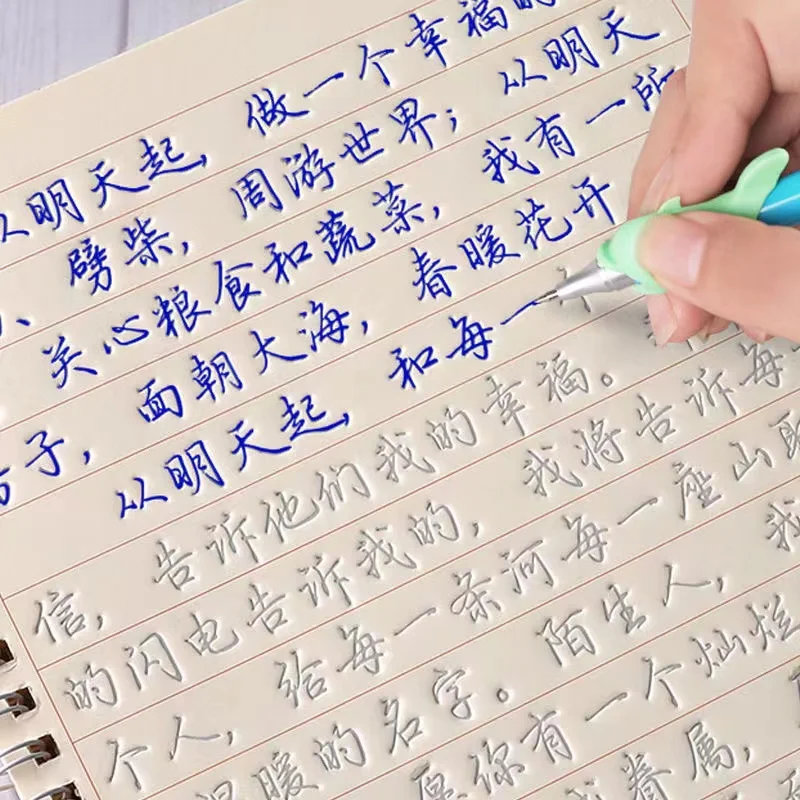 从明天起, 做一个幸福的
、劈柴, 周游世界; 从明天
关心粮食和蔬菜, 我有一所
房子, 面朝大海, 春暖花开
从明天起, 和每一
信, 告诉他们我的幸福。
的闪电告诉我的, 我将告诉每
个人, 给每一条河每一座山取
温暖的名字。陌生人, 我
愿你有一个灿烂
眷属,